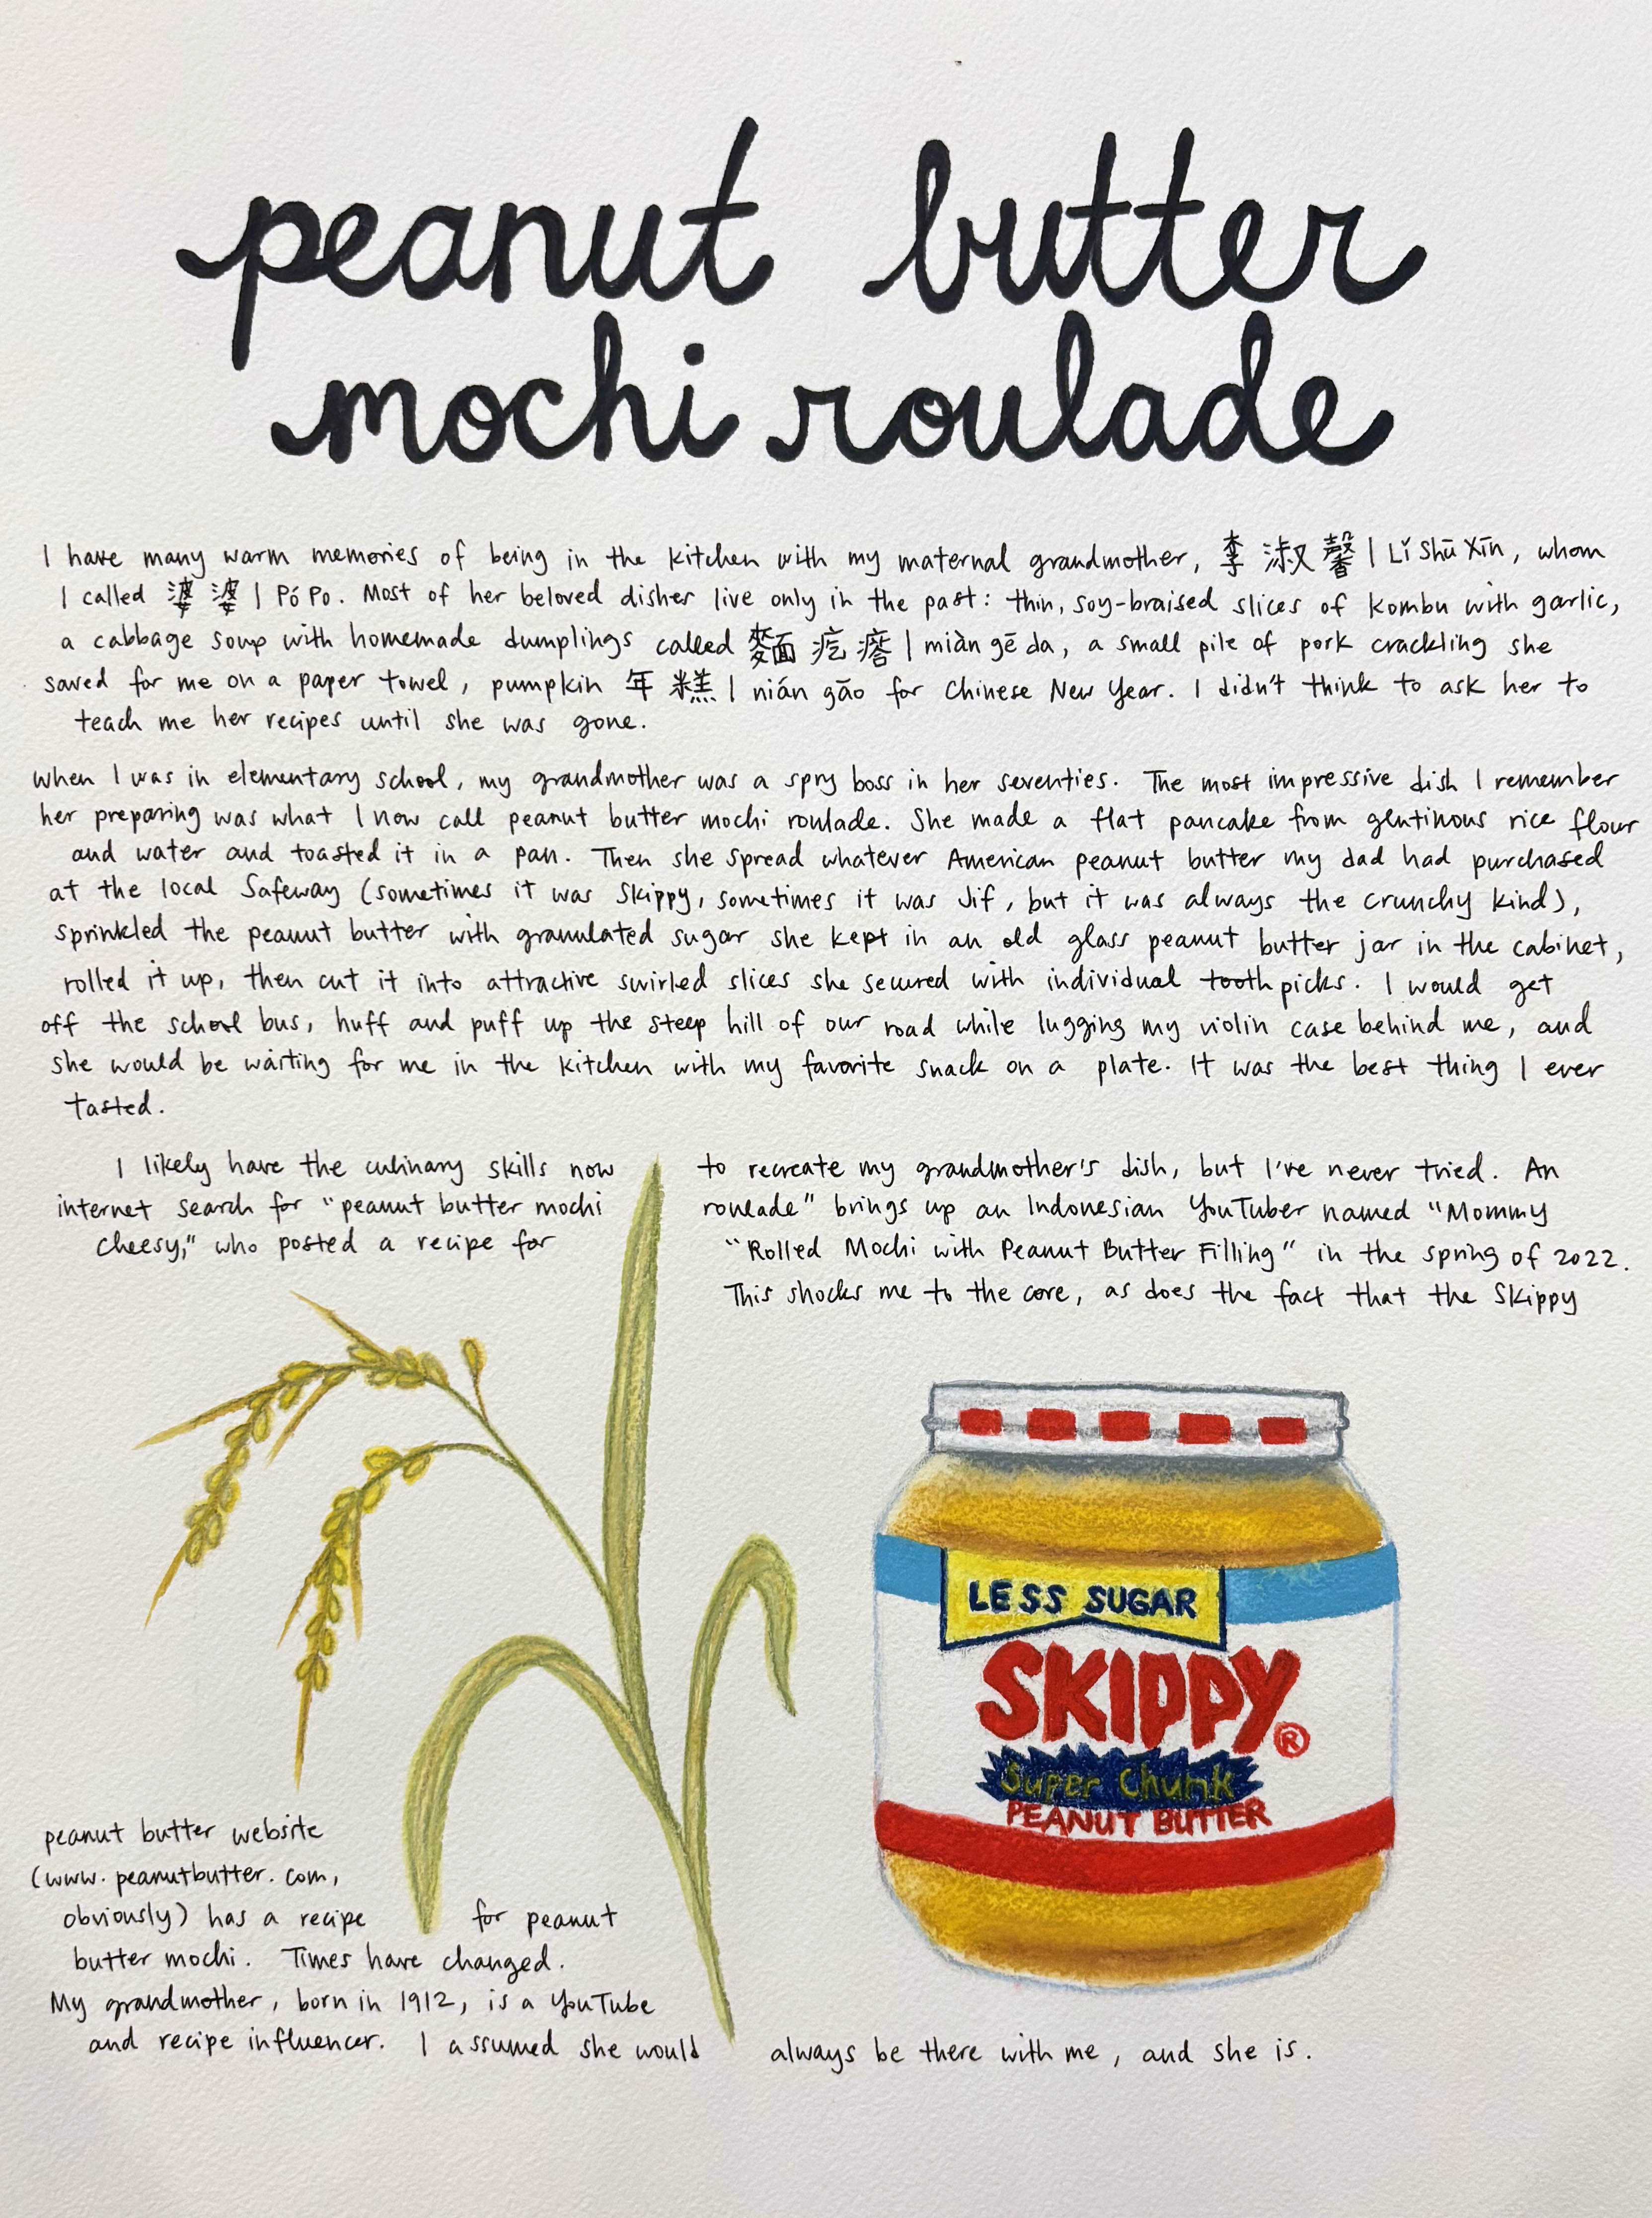 peanut butter
mochi roulade
I have many warm memories of being in the kitchen with my maternal grandmother, 李淑馨 | Lǐ Shū Xīn, whom
I called 婆婆 | Pó Po. Most of her beloved dishes live only in the past: thin, soy-braised slices of kombu with garlic,
a cabbage soup with homemade dumplings called 麵疙瘩 | miàn gē da, a small pile of pork crackling she
saved for me on a paper towel, pumpkin 年糕 | nián gāo for Chinese New Year. I didn't think to ask her to
teach me her recipes until she was gone.
When I was in elementary school, my grandmother was a spry boss in her seventies. The most impressive dish I remember
her preparing was what I now call peanut butter mochi roulade. She made a flat pancake from glutinous rice flour
and water and toasted it in a pan. Then she spread whatever American peanut butter my dad had purchased
at the local Safeway (sometimes it was Skippy, sometimes it was Jif, but it was always the crunchy kind),
sprinkled the peanut butter with granulated sugar she kept in an old glass peanut butter jar in the cabinet,
rolled it up, then cut it into attractive swirled slices she secured with individual toothpicks. I would get
off the school bus, huff and puff up the steep hill of our road while lugging my violin case behind me, and
she would be waiting for me in the kitchen with my favorite snack on a plate. It was the best thing I ever
tasted.
I likely have the culinary skills now to recreate my grandmother's dish, but I've never tried. An
internet search for "peanut butter mochi roulade" brings up an Indonesian YouTuber named "Mommy
Cheesy," who posted a recipe for "Rolled Mochi with Peanut Butter Filling" in the spring of 2022.
This shocks me to the core, as does the fact that the Skippy
peanut butter website
(www.peanutbutter.com,
obviously) has a recipe for peanut
butter mochi. Times have changed.
My grandmother, born in 1912, is a YouTube
and recipe influencer. I assumed she would always be there with me, and she is.
LESS SUGAR
SKIPPY®
Super Chunk
PEANUT BUTTER